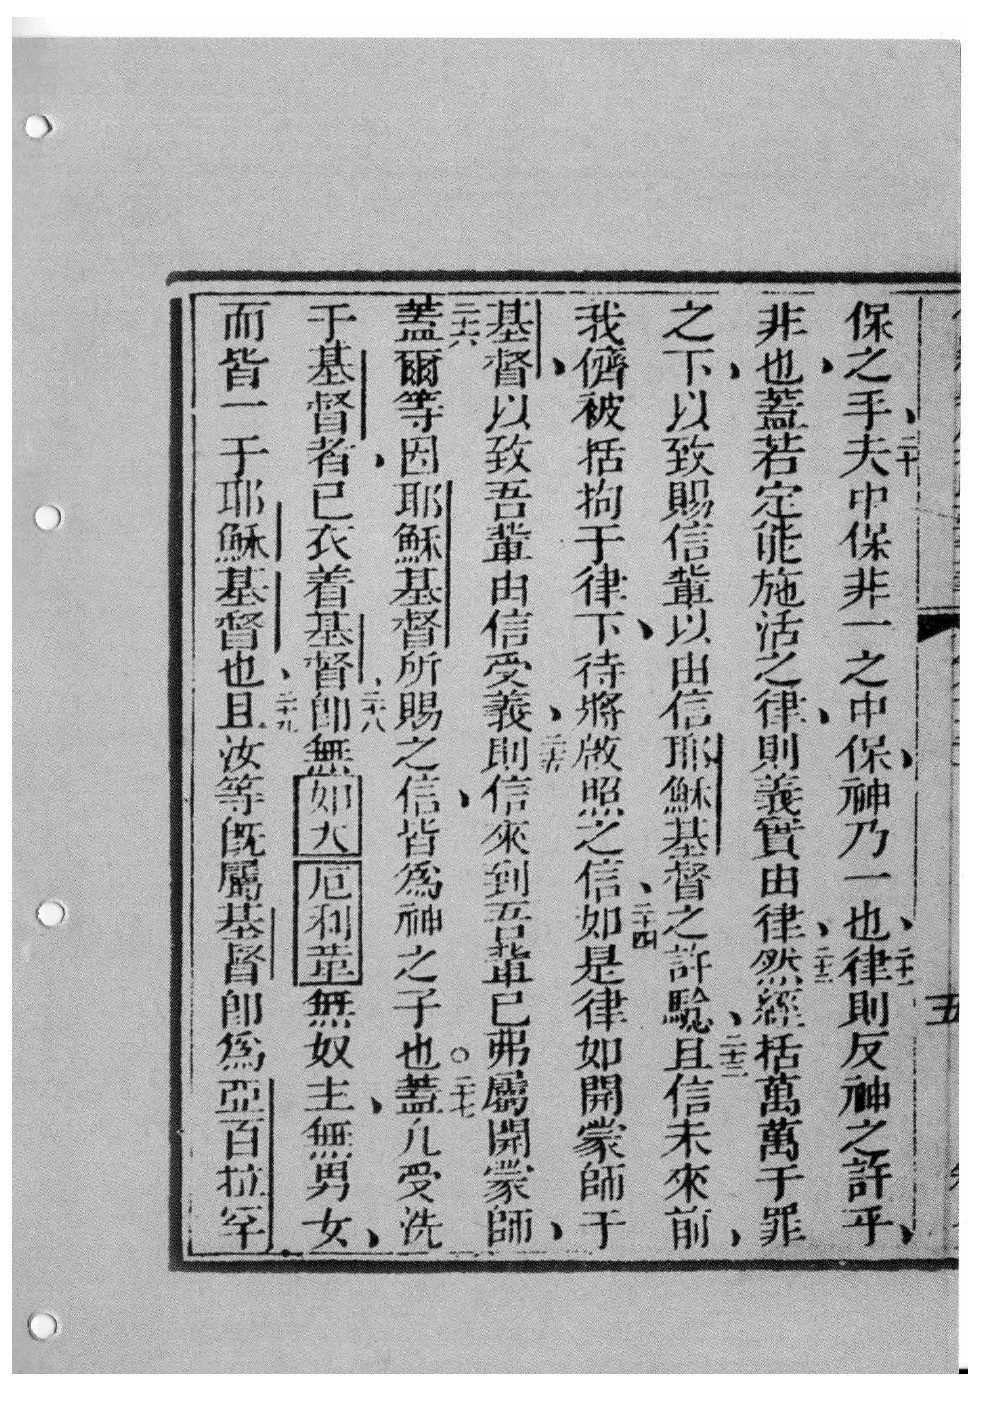 保之手、二十夫中保非一之中保、神乃一也、二十一律則反神之許乎、
非也、蓋若定能施活之律、則義實由律、二十二然經括萬萬于罪
之下、以致賜信輩以由信耶穌基督之許驗、二十三且信未來前、
我儕被括拘于律下、待將啟照之信、二十四如是律如開蒙師于
基督、以致吾輩由信受義、二十五則信來到吾輩已弗屬開蒙師、
二十六蓋爾等因耶穌基督所賜之信、皆為神之子也○二十七蓋凡受洗
于基督者、已衣着基督、二十八即無如大厄利葦無奴主、無男女、
而皆一于耶穌基督也、二十九且汝等既屬基督即為亞百拉罕
五